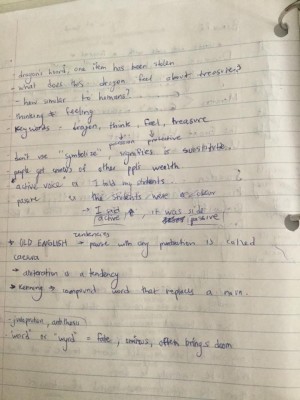 - dragon's hoard, one item has been stolen
- what does this dragon feel about treasures
- how similar to humans?
thinking & feeling
key words - dragon, think, feel, treasure
protective
don't use "symbolize", signifies
people get views of other ppls wealth
active voice I told my students
passive the students were
→ I said it was said
active, passive
tendencies
* OLD ENGLISH → pause with any punctuation is called
caesura
→ alliteration is a tendency
→ kenning → compound word that replaces a noun.
- juxtaposition, antithesis
- word" or "wyrd" = fate, ominous, often brings doom